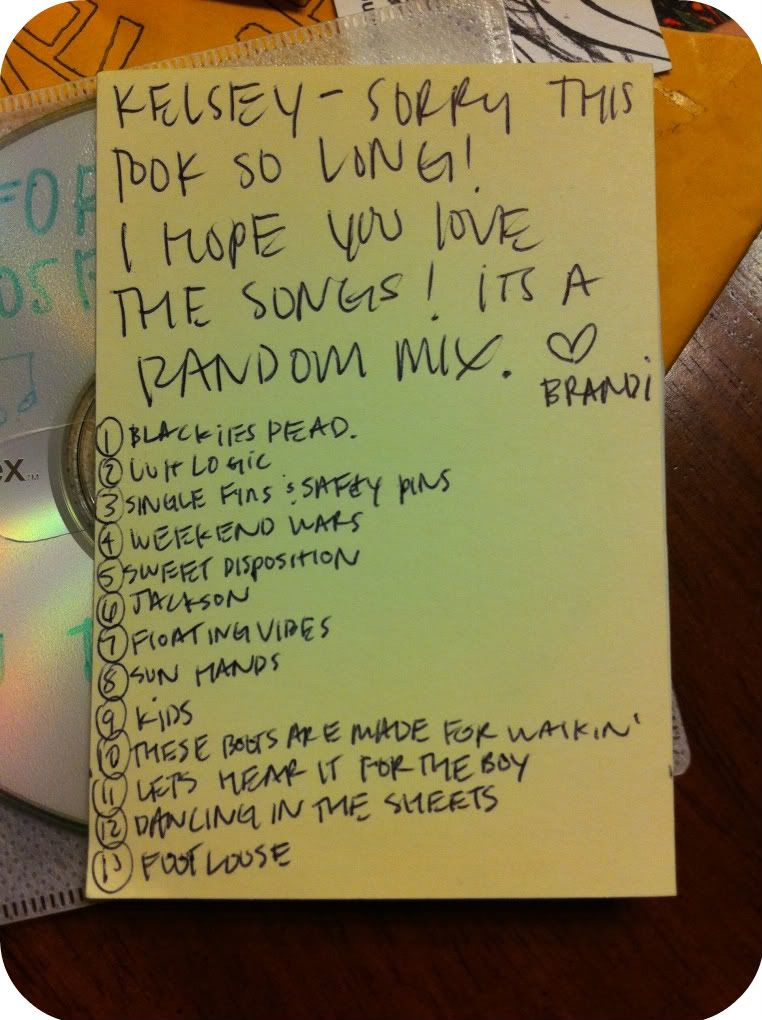 KELSEY - SORRY THIS
TOOK SO LONG!
I HOPE YOU LOVE
THE SONGS! ITS A
RANDOM MIX. ♡
BRANDi
① BLACKIES DEAD.
② LUH LOGIC
③ SINGLE FINS & SAFETY PINS
④ WEEKEND WARS
⑤ SWEET DISPOSITION
⑥ JACKSON
⑦ FLOATING VIBES
⑧ SUN HANDS
⑨ KiDS
⑩ THESE BOOTS ARE MADE FOR WALKIN'
⑪ LETS HEAR IT FOR THE BOY
⑫ DANCING IN THE SHEETS
⑬ FOOTLOOSE
FOR
ex™